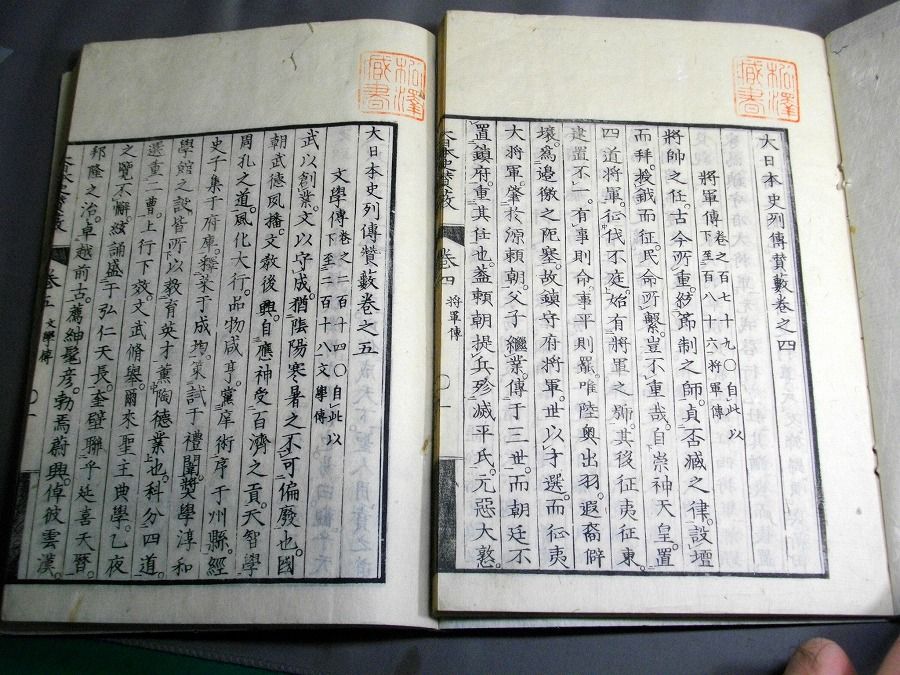 松澤
藏書
大日本史列傳贊藪卷之四
將軍傳 卷之百七十九○自此以
下至百八十六將軍傳
將帥之任。古今所重。節制之師。貞否臧之律。設壇
而拜。授鉞而征。民命所繫。豈不重哉。自崇神天皇。置
四道將軍。征伐不庭。始有將軍之號。其後征夷征東。
建置不一。有事則命。事平則罷。唯陸奧出羽。遐裔僻
壤。爲邊徼之阨塞。故鎮守府將軍。世以才選。而征夷
大將軍。肇於源頼朝。父子繼業。傳于三世。而朝廷不
置鎮府。重其任也。蓋頼朝提兵殄滅平氏。元惡大憝
卷四 將軍傳 ○一
松澤
藏書
大日本史列傳贊藪卷之五
文學傳 卷之二百十四○自此以
下至二百十八文學傳
武以創業。文以守成。猶陰陽寒暑之不可偏廢也。國
朝武德夙播。文教後興。自應神受百濟之貢。天智學
周孔之道。風化大行。品物咸亨。黨庠術序于州縣。經
史子集于府庫。釋菜于成均。策試于禮闈。奬學淳和
學館之設。皆所以教育英才薰陶德業也。科分四道。
選重二曹。上行下效。文武脩擧。爾來聖主典學。乙夜
之覽不懈。絃誦盛于弘仁天長。奎壁聯乎延喜天曆。
邦隆之治。卓越前古。薦紳髦彦。勃焉蔚興。倬彼雲漢。
卷五 文學傳 ○一